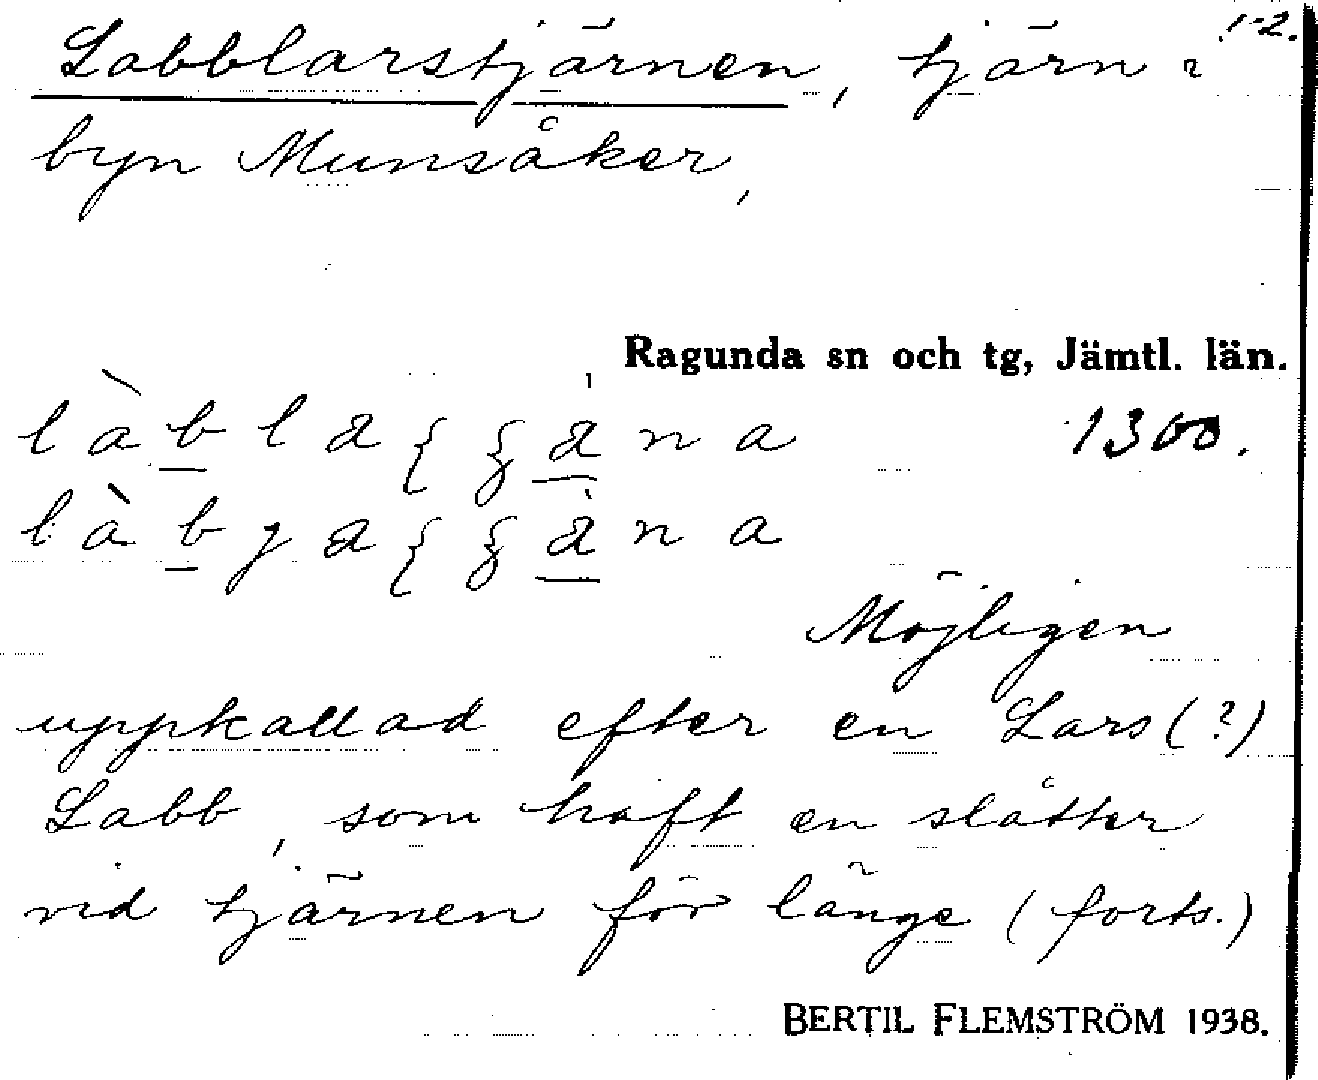 1-2.
Labblarstjärnen, tjärn i
byn Munsåker,
Ragunda sn och tg, Jämtl. län.
1300.
Möjligen
uppkallad efter en Lars (?)
Labb, som haft en slåtter
vid tjärnen för länge (forts.)
BERTIL FLEMSTRÖM 1938.